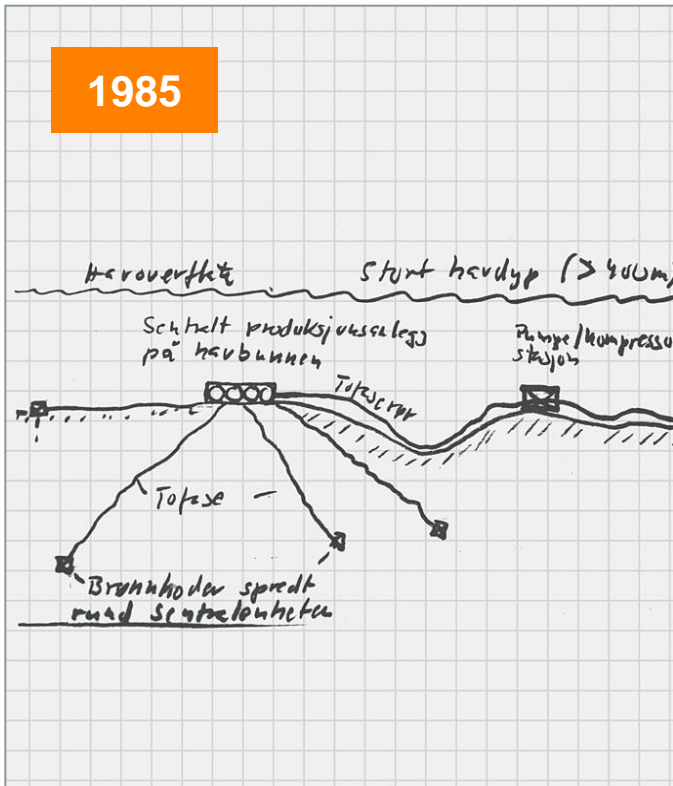 1985
Havoverflate
Stort havdyp (> 400m)
Sentralt produksjonsanlegg
på havbunnen
Pumpe/kompresso
stasjon
Tofaserør
Tofase
Brønnhoder spredt
rundt sentralenheten